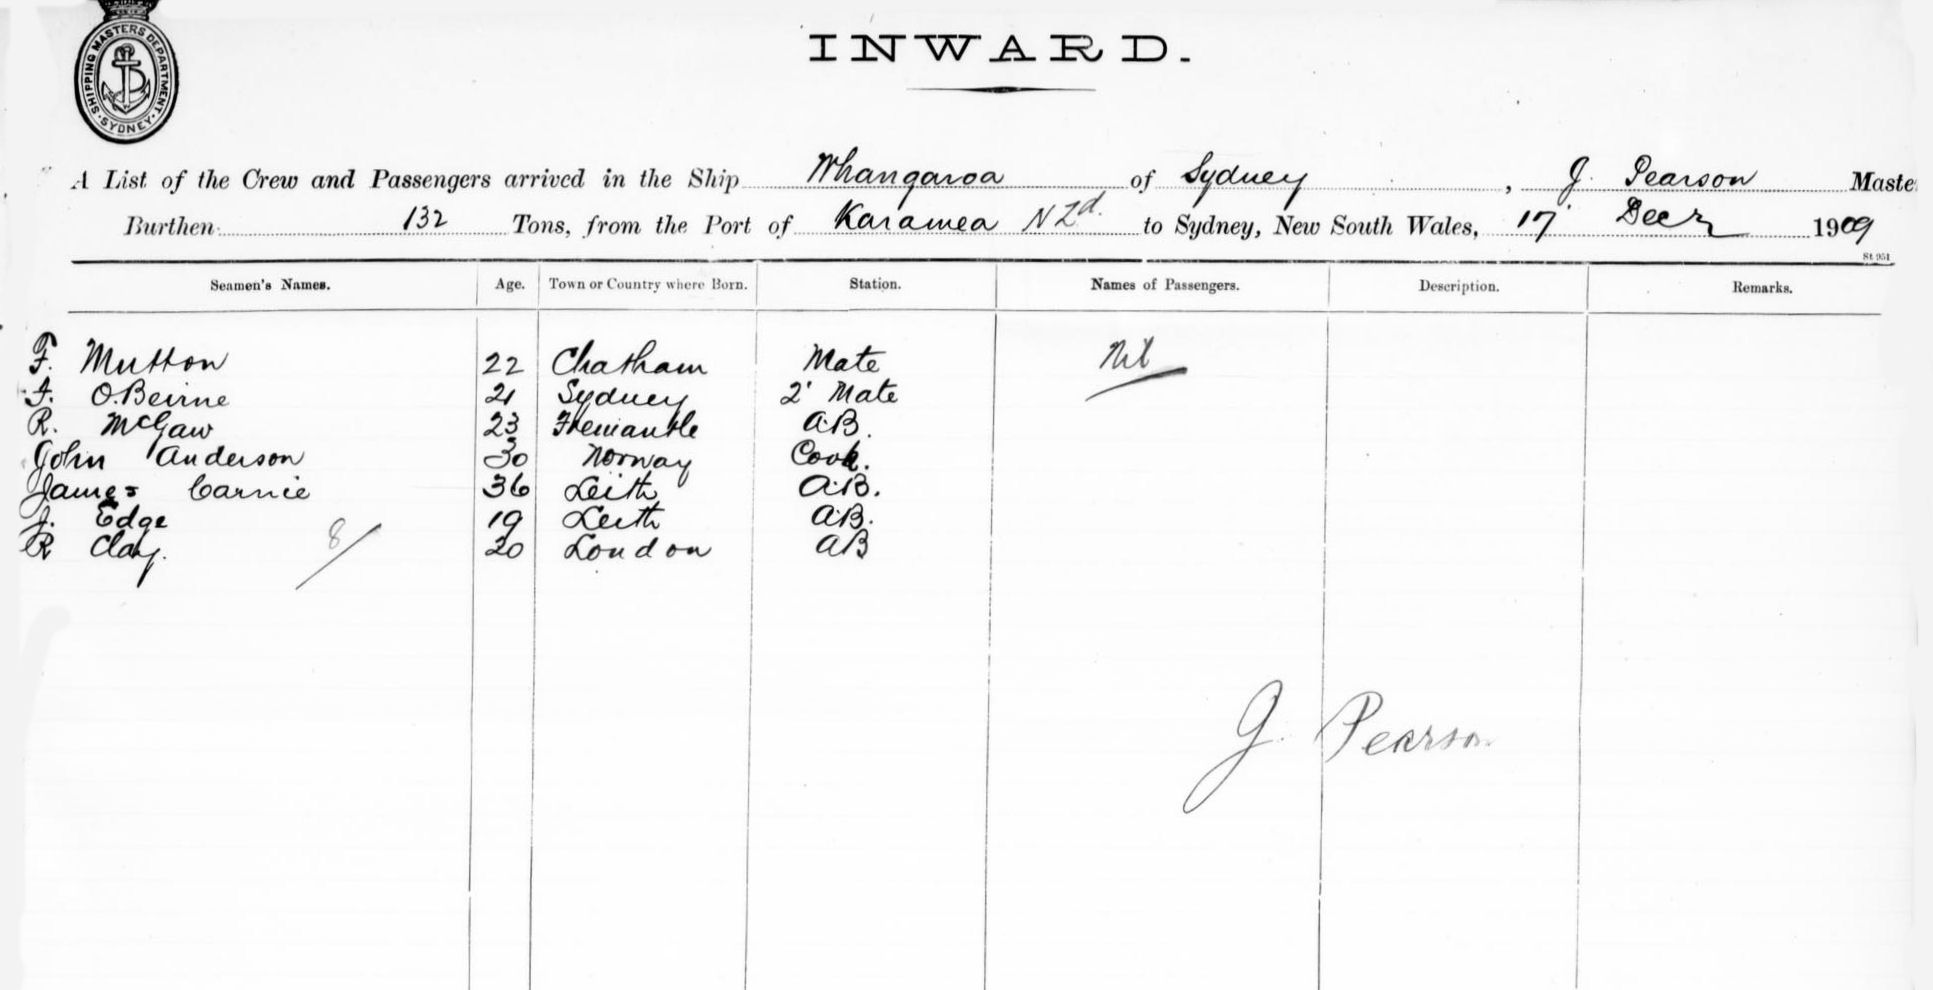 SHIPPING MASTERS DEPARTMENT. SYDNEY
INWARD.
A List of the Crew and Passengers arrived in the Ship Whangaroa of Sydney, J. Pearson Maste
Burthen 132 Tons, from the Port of Karamea NZd. to Sydney, New South Wales, 17 Decr 1909
St 951
Seamen's Names. Age. Town or Country where Born. Station. Names of Passengers. Description. Remarks.
F. Mutton 22 Chatham Mate Nil
F. O.Beirne 21 Sydney 2' Mate
R. McGaw 23 Fremantle A.B.
John Anderson 30 Norway Cook.
James Carnie 36 Leith A.B.
J. Edge 19 Leith A.B.
R Clay. 20 London AB
8/
J. Pearson